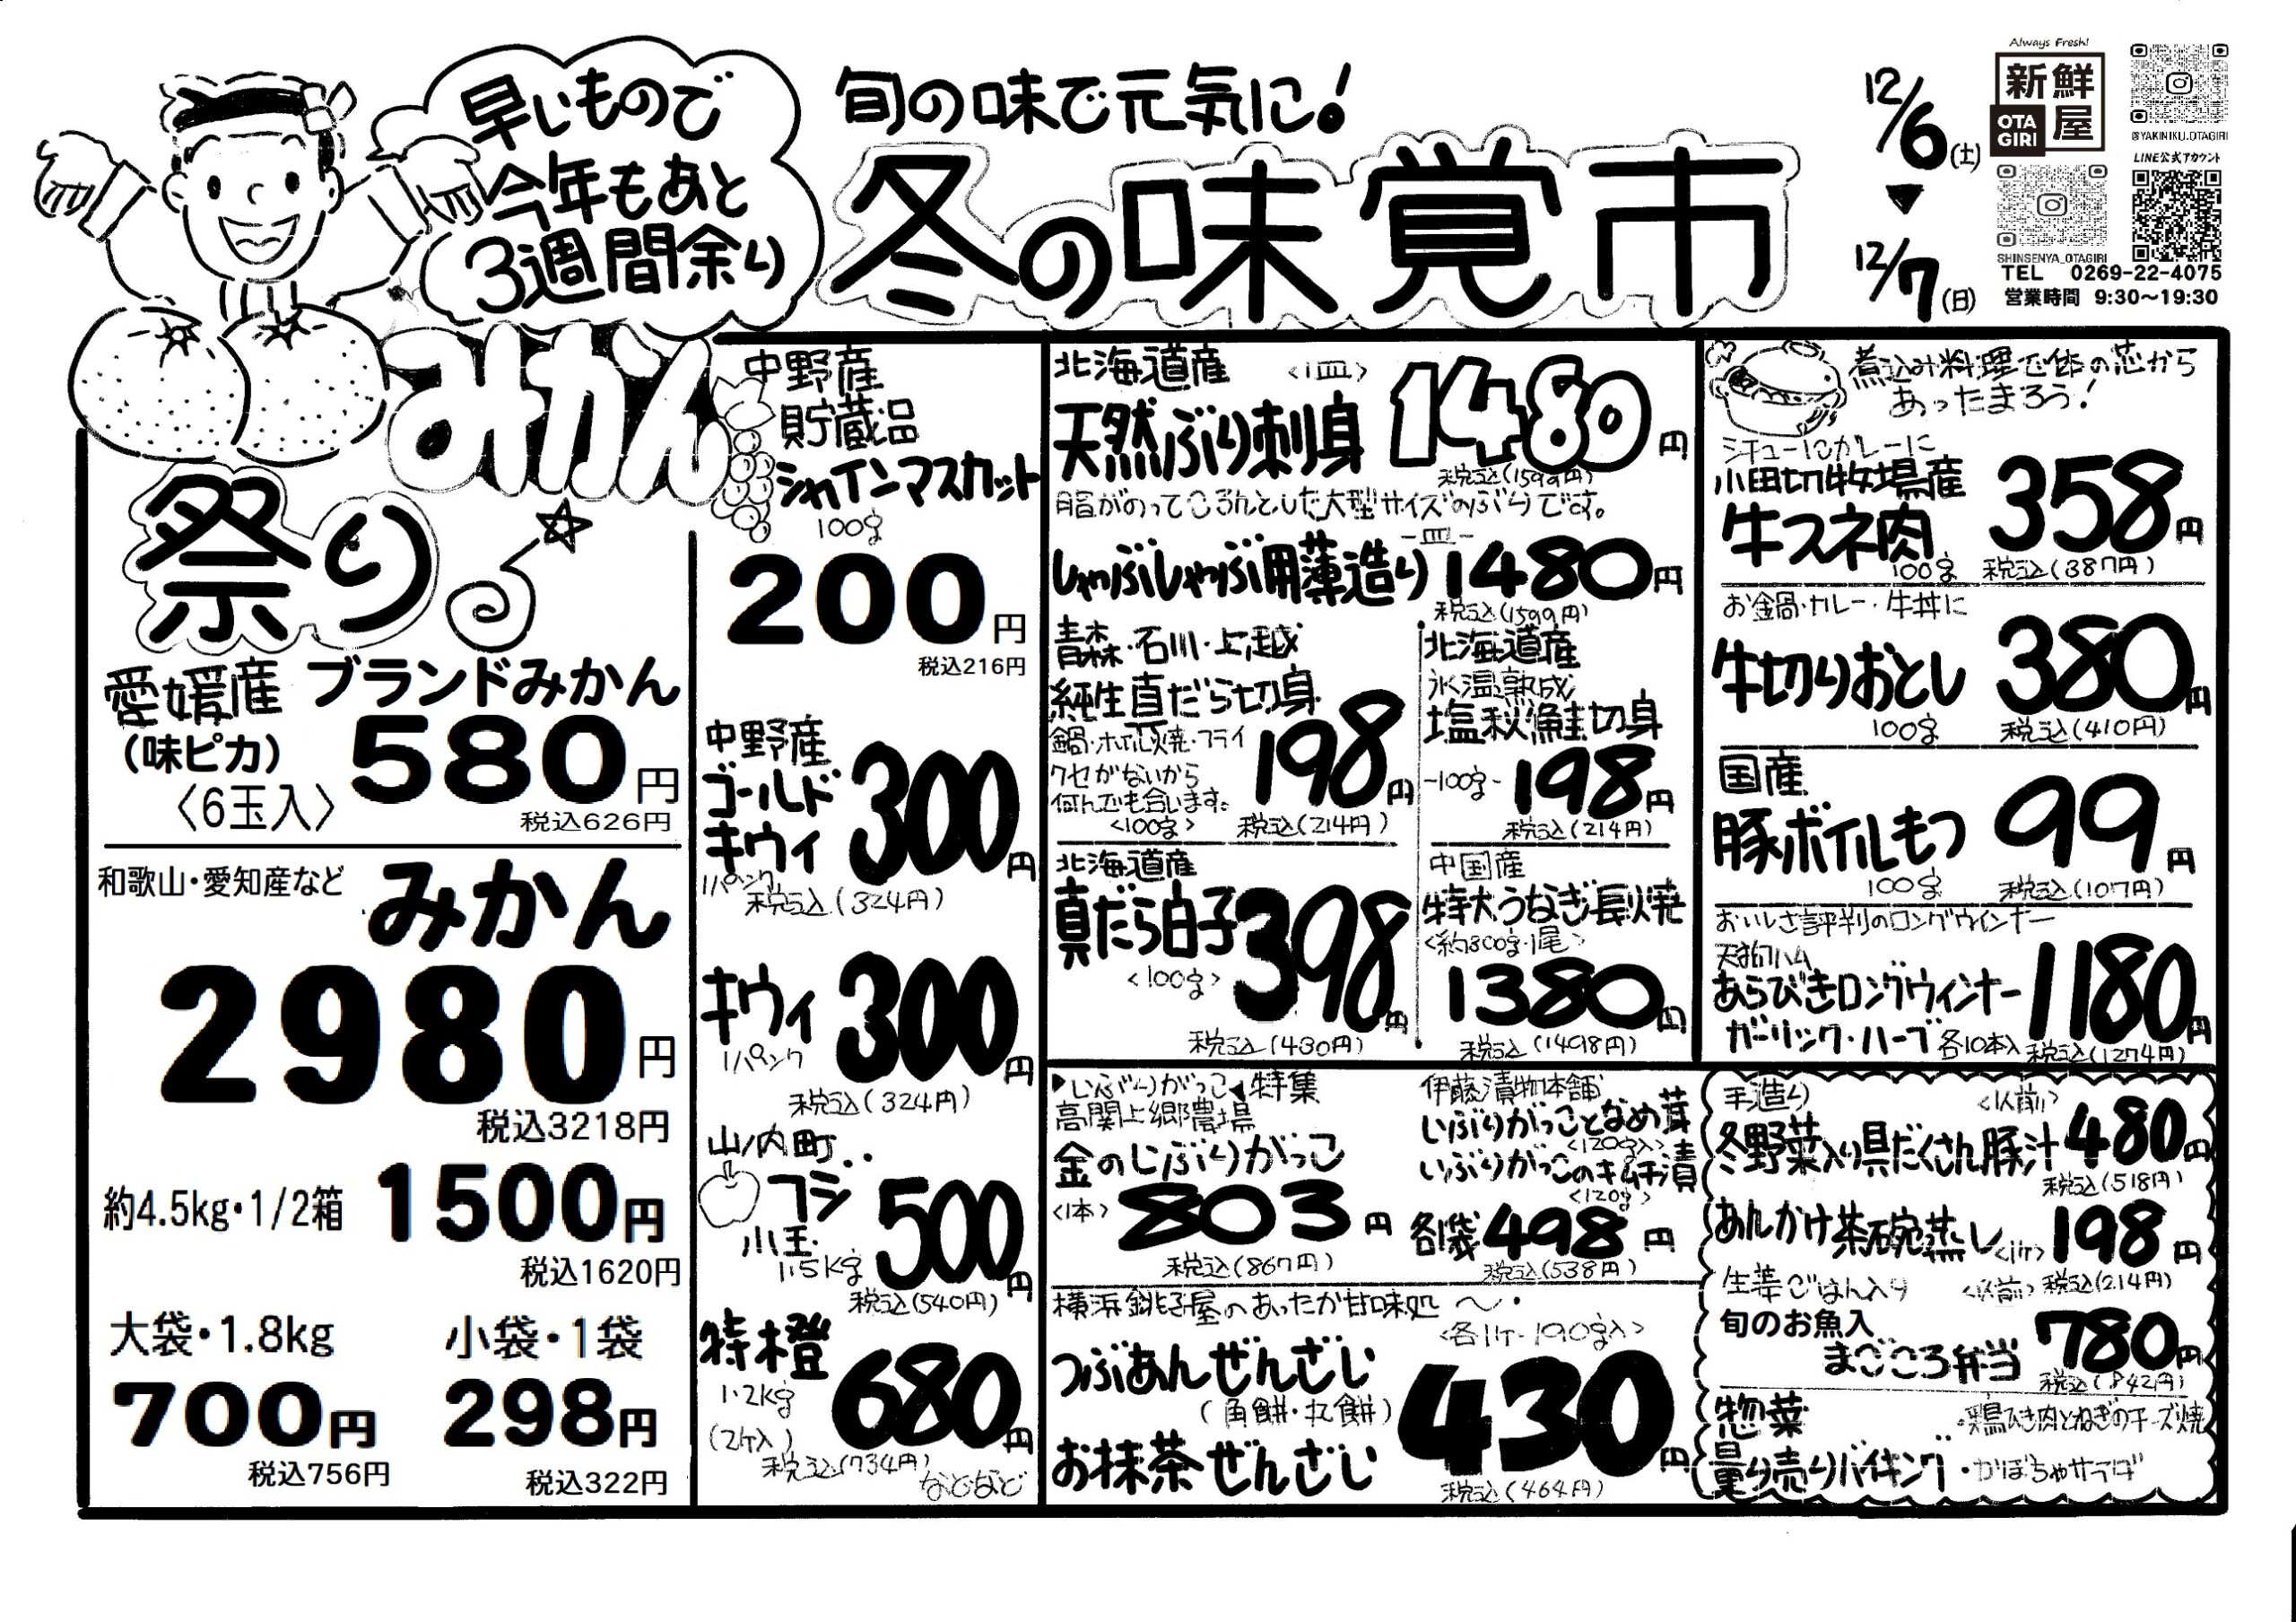 早いもので
今年もあと
3週間余り
旬の味で元気に!
冬の味覚市
12/6(土)
▼
12/7(日)
Always Fresh!
新鮮屋
OTAGIRI
@YAKINIKU.OTAGIRI
LINE公式アカウント
SHINSENYA_OTAGIRI
TEL 0269-22-4075
営業時間 9:30～19:30
みかん
祭り
愛媛産 ブランドみかん
(味ピカ)
〈6玉入〉
580円
税込626円
和歌山・愛知産など みかん
2980円
税込3218円
約4.5kg・1/2箱 1500円
税込1620円
大袋・1.8kg
700円
税込756円
小袋・1袋
298円
税込322円
中野産
貯蔵品
シャインマスカット
100g
200円
税込216円
中野産
ゴールド
キウイ
1パック
300円
税込(324円)
キウイ
1パック
300円
税込(324円)
山ノ内町
フジ
小玉
1.5kg
500円
税込(540円)
特橙
1.2kg
(2ケ入)
680円
税込(734円)
などなど
北海道産 <1皿>
天然ぶり刺身 1480円
税込(1599円)
脂がのってころんとした大型サイズのぶりです。
しゃぶしゃぶ用薄造り -皿- 1480円
税込(1599円)
青森・石川・上越
純生真だら切身
鍋・ホイル焼・フライ
クセがないから
何んでも合います。
<100g>
198円
税込(214円)
北海道産
氷温熟成
塩秋鮭切身
-100g- 198円
税込(214円)
北海道産
真だら白子
<100g>
398円
税込(430円)
中国産
特大うなぎ長焼
<約300g・1尾>
1380円
税込(1498円)
煮込み料理で体の芯から
あったまろう!
シチューにカレーに
小田切牧場産
牛スネ肉
100g
358円
税込(387円)
お鍋・カレー・牛丼に
牛切りおとし 380円
100g 税込(410円)
国産
豚ボイルもつ 99円
100g 税込(107円)
おいしさ評判のロングウインナー
天狗ハム
あらびきロングウィンナー
ガーリック・ハーブ 各10本入
1180円
税込(1274円)
▶いぶりがっこ◀特集
高関上郷農場
金のいぶりがっこ
<1本> 803円
税込(867円)
伊藤漬物本舗
いぶりがっことなめ茸
<120g入>
いぶりがっこのキムチ漬
<120g>
各袋498円
税込(538円)
横浜銚子屋のあったか甘味処 〜・
<各1ケ・190g入>
つぶあんぜんざい
(角餅・丸餅)
お抹茶ぜんざい
430円
税込(464円)
手造り <1人前>
冬野菜入り具だくさん豚汁 480円
税込(518円)
あんかけ茶碗蒸し<1ケ> 198円
税込(214円)
生姜ごはん入り <1人前>
旬のお魚入
まごころ弁当 780円
税込(842円)
惣菜
量り売りバイキング
・鶏ひき肉とねぎのチーズ焼
・かぼちゃサラダ